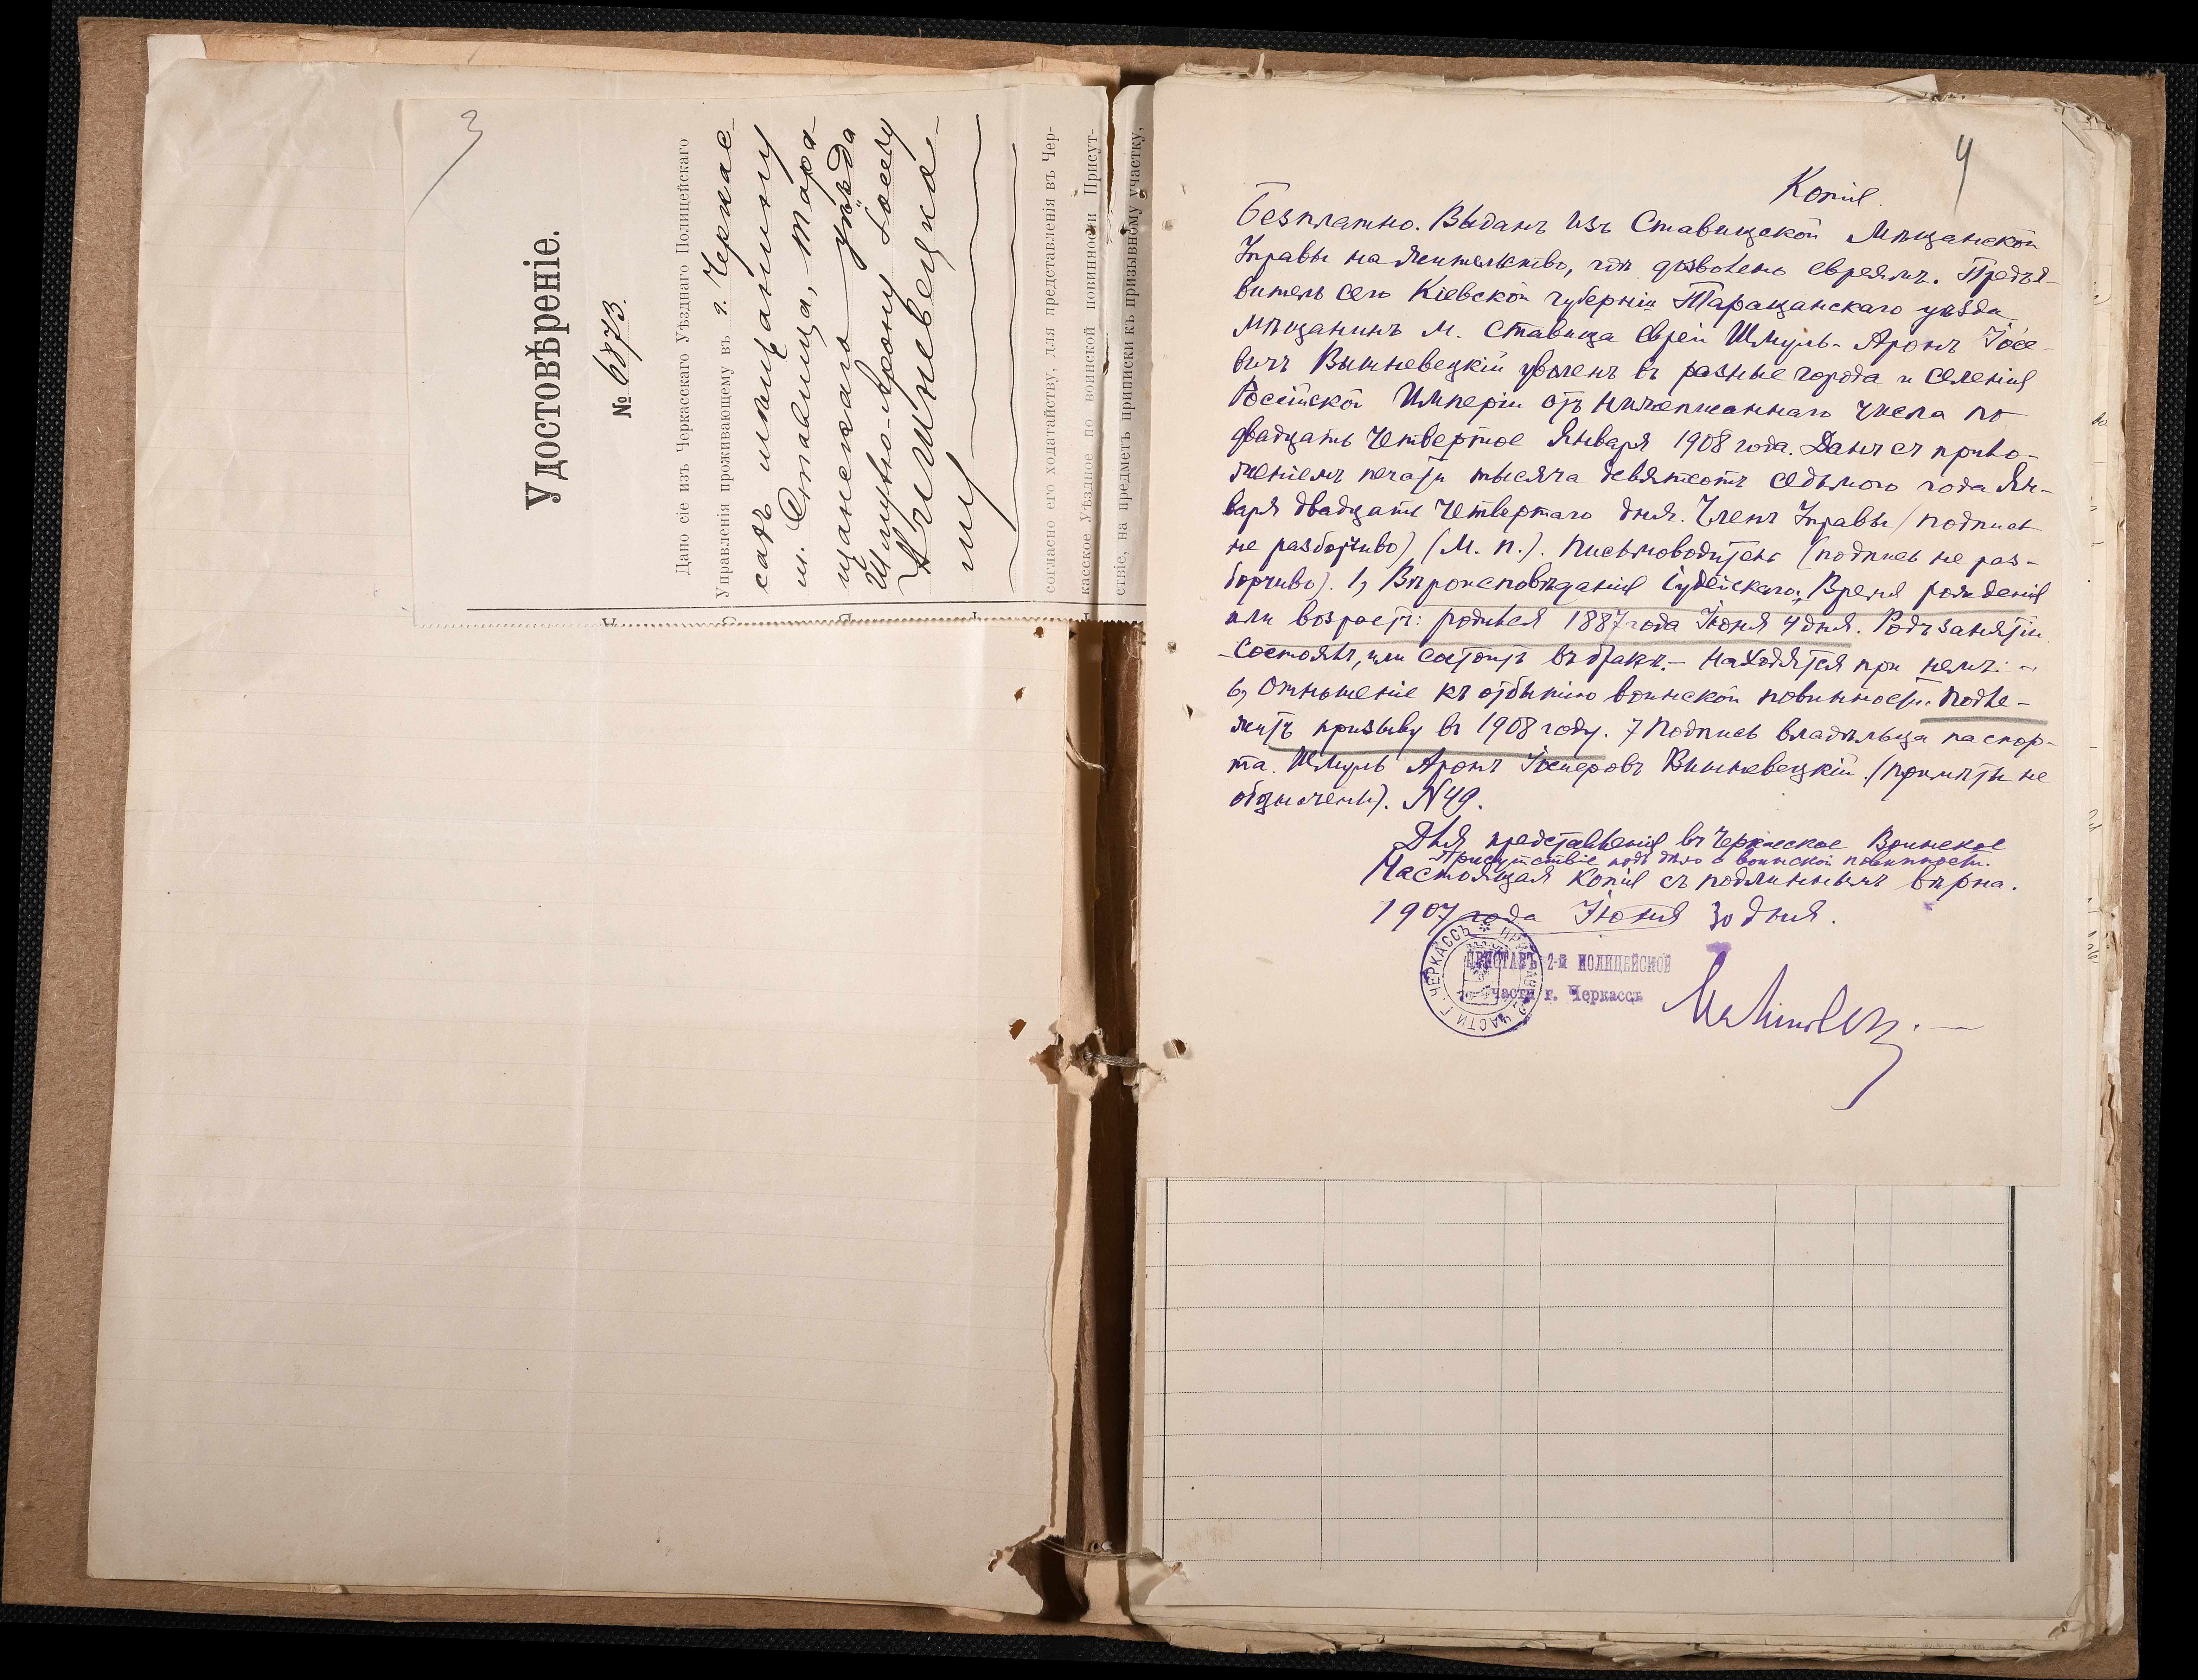 3
Удостовѣреніе.
№ 6873.
Дано сіе изъ Черкасскаго Уѣзднаго Полицейскаго
Управленія проживающему въ г. Черкас-
сахъ мѣщанину
м. Ставища, Тара-
щанскаго уѣзда
Шмулю-Арону Іосеву
Вишневецко-
му
согласно его ходатайству, для представленія въ Чер-
касское Уѣздное по воинской повинности Присут-
ствіе, на предметъ приписки къ призывному участку,
4
Копія.
Безплатно. Выданъ изъ Ставищской Мѣщанской
Управы на жительство, гдѣ дозволено евреямъ. Предъя-
витель сего Кіевской губерніи Таращанскаго уѣзда
мѣщанинъ м. Ставища Еврей Шмуль-Аронъ Іосе-
вичъ Вишневецкій уволенъ въ разные города и селенія
Россійской Имперіи отъ нижеписаннаго числа по
двадцать четвертое Января 1908 года. Данъ съ прило-
женіемъ печати тысяча девятьсотъ седьмого года Ян-
варя двадцать четвертаго дня. Членъ Управы (подпись
не разборчиво) (М. П.). Письмоводитель (подпись не раз-
борчиво). 1, Вѣроисповѣданія іудейскаго, Время рожденія
или возрастъ: родился 1887 года Іюня 4 дня. Родъ занятій
Состоялъ, или состоитъ въ бракѣ. - Находятся при немъ: -
6, Отношеніе къ отбытію воинской повинности. Подле-
житъ призыву въ 1908 году. 7 Подпись владѣльца паспор-
та. Шмуль Аронъ Іосиповъ Вишневецкій. (примѣты не
обозначены). N 49.
Для представленія въ Черкасское Воинское
Присутствіе по воинской повинности.
Настоящая копія съ подлиннымъ вѣрна.
1907 года Іюня 30 дня.
ПРИСТАВЪ 2-й ПОЛИЦЕЙСКОЙ
части г. Черкассъ